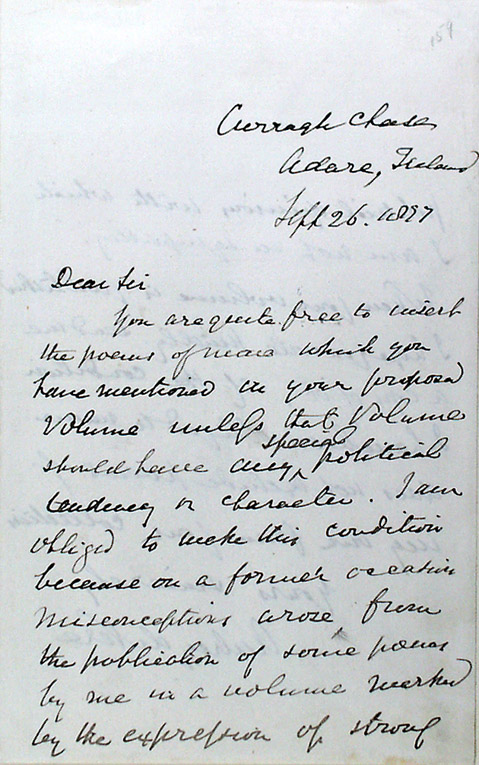 159
Curragh Chase
Adare, Ireland
Sept 26. 1897
Dear Sir
You are quite free to insert
the poems of mine which you
have mentioned in your proposed
Volume unless that Volume
should have any special political
tendency or character. I am
obliged to make this condition
because on a former occasion
misconceptions arose from
the publication of some poems
by me in a volume marked
by the expression of strong